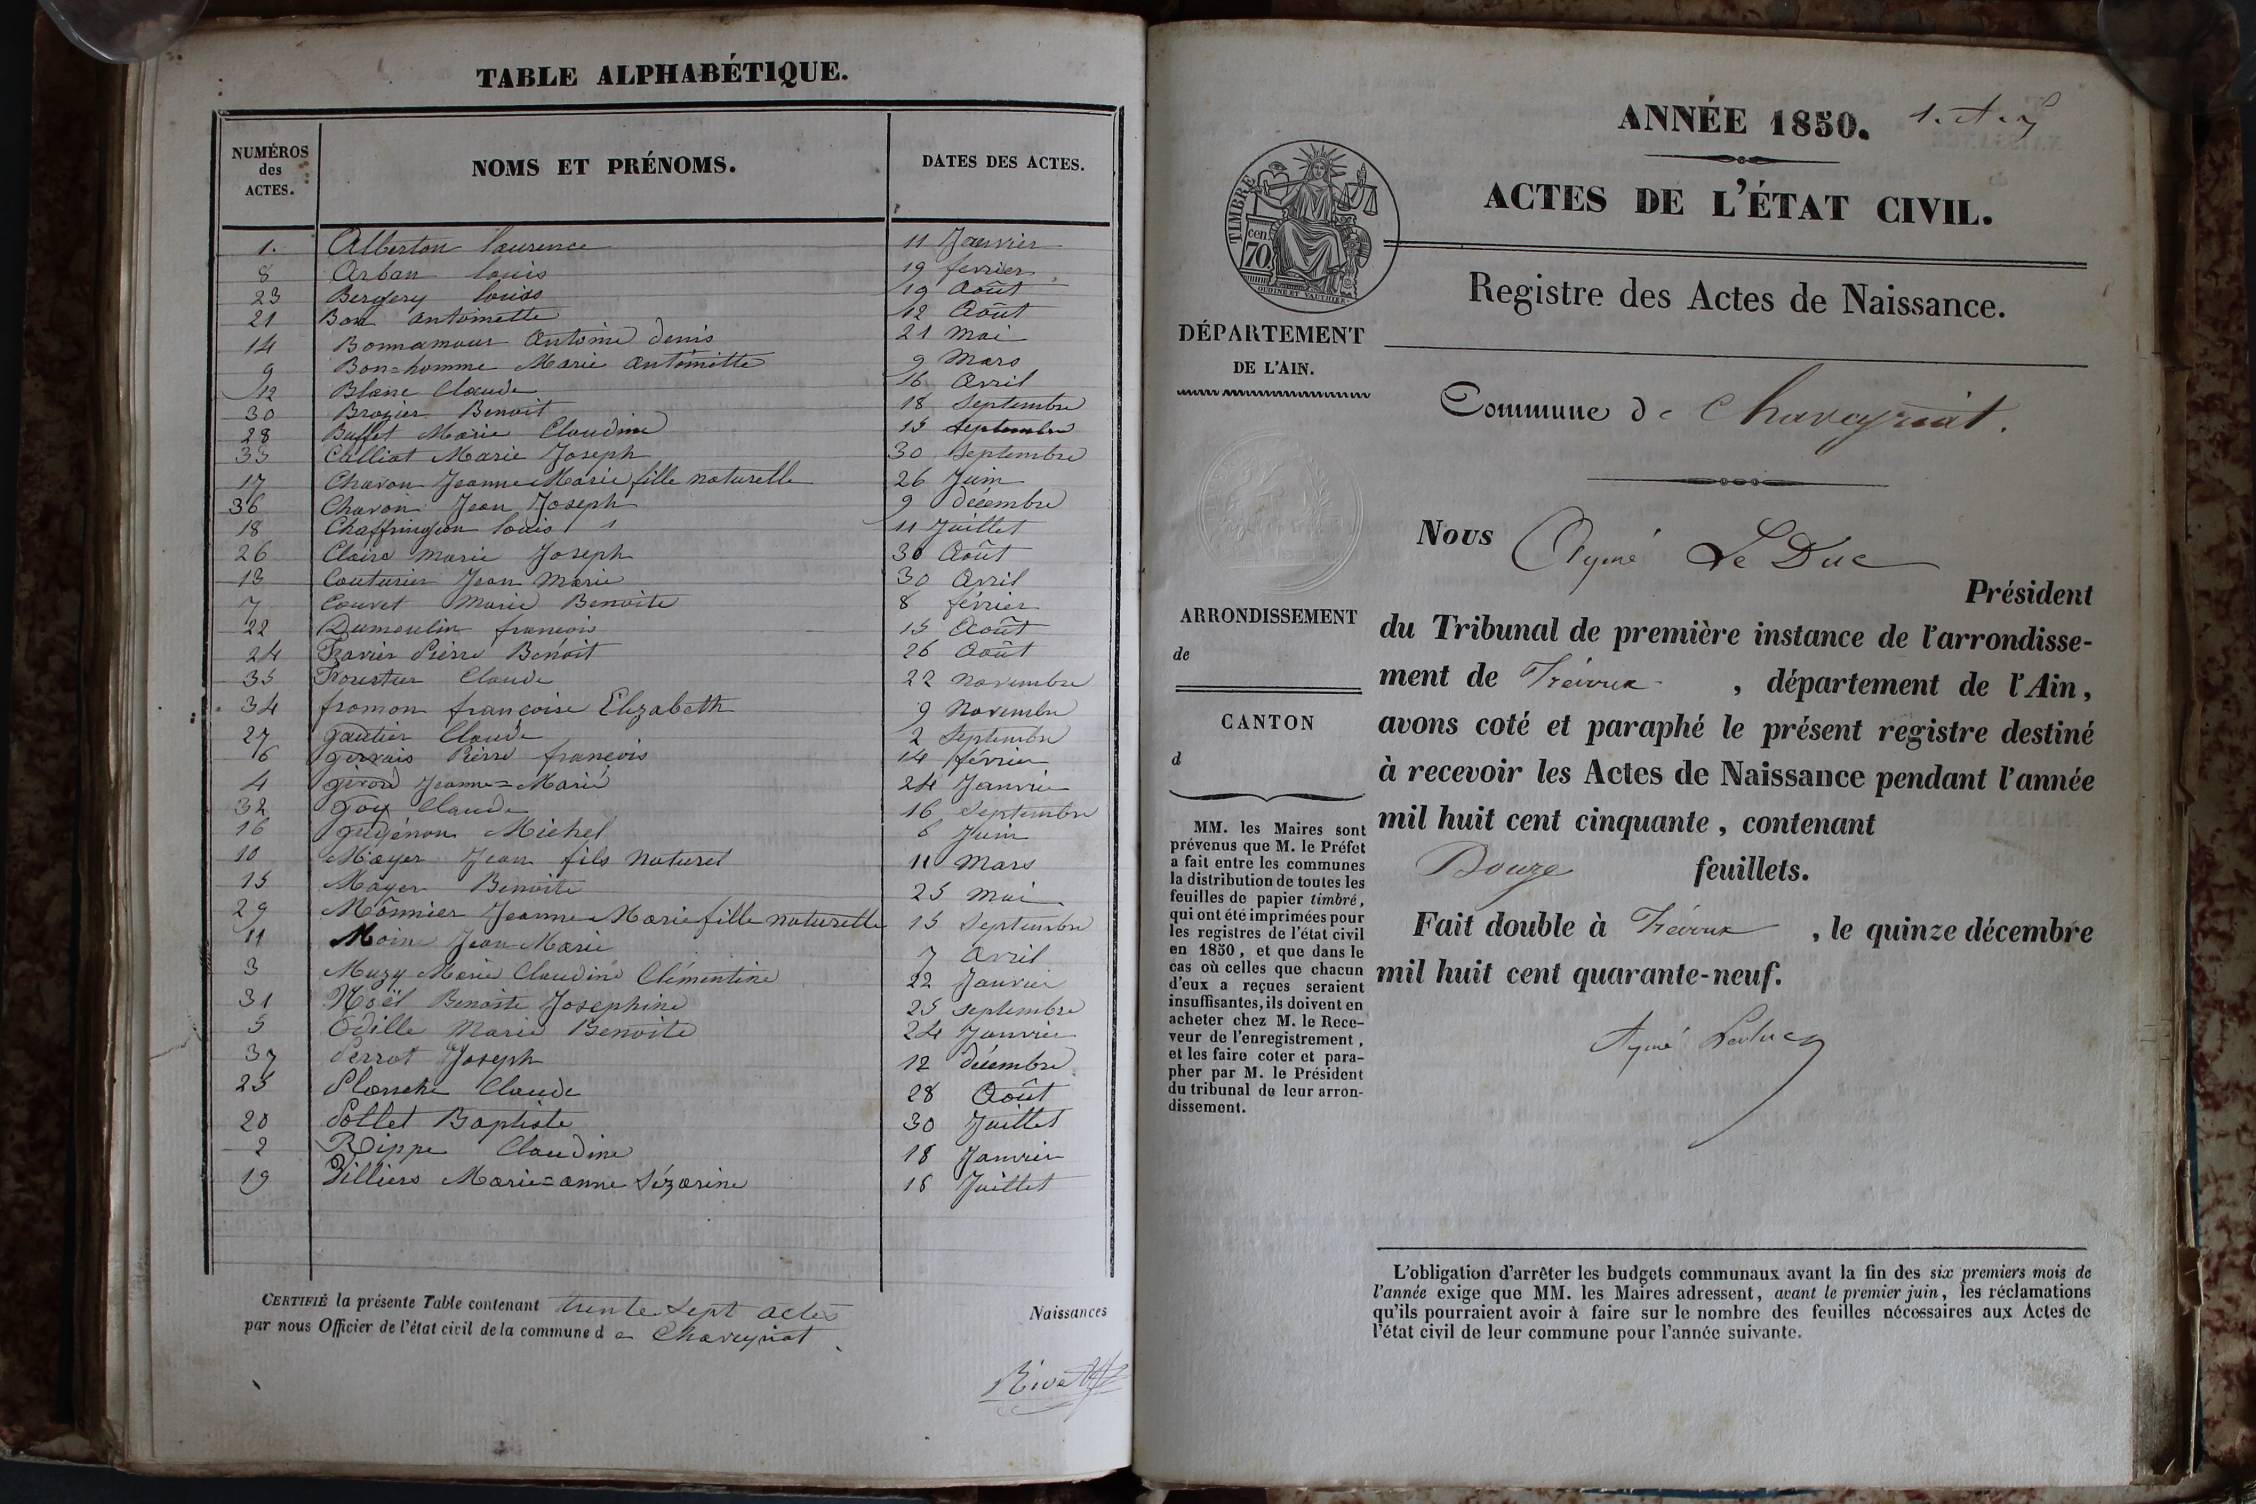 TABLE ALPHABÉTIQUE.
NUMÉROS des ACTES.
NOMS ET PRÉNOMS.
DATES DES ACTES.
1. Alberton laurence 11 Janvier
8 Arban louis 19 fevrier
23 Bergery louise 19 Août
21 Bon antoinette 12 Août
14 Bonnamour antoine denis 21 mai
9 Bon=homme Marie antoinette 9 Mars
12 Blanc Claude 16 avril
30 Brazier Benoit 18 Septembre
28 Buffet Marie Claudine 15 septembre
33 Calliat Marie Joseph 30 Septembre
17 Charon Jeanne Marie fille naturelle 26 Juin
36 Charon Jean Joseph 9 décembre
18 Chaffringeon louis 11 Juillet
26 Claire marie Joseph 30 Août
13 Couturier Jean Marie 30 avril
7 Couvet Marie Benoite 8 février
22 Dumoulin francois 15 Août
24 Favier Pierre Benoit 26 Août
35 Forestier Claude 22 novembre
34 fromon francoise Elizabeth 9 Novembre
27 gautier Claude 2 Septembre
6 gervais Pierre francois 14 février
4 girard Jeanne=Marie 24 Janvier
32 goy Claude 16 Septembre
16 guigénon Michel 6 Juin
10 Mayer Jean fils naturel 11 Mars
15 Mayer Benoite 25 mai
29 Mônnier Jeanne Marie fille naturelle 15 Septembre
11 Moine Jean-Marie 7 avril
3 Muzy Marie Claudine Clémentine 22 Janvier
31 Noël Benoite Josephine 25 septembre
5 Odille Marie Benoite 24 Janvier
37 Perrat Joseph 12 décembre
25 Planche Claude 28 Août
20 Pollet Baptiste 30 Juillet
2 Rippe Claudine 18 Janvier
19 Villiers Marie=anne Sézarine 18 Juillet
CERTIFIÉ la présente Table contenant trente sept actes Naissances
par nous Officier de l'état civil de la commune d e Chaveyriat
ANNÉE 1850.
ACTES DE L'ÉTAT CIVIL.
TIMBRE
cen. 70
OUDINÉ ET VAUTHIER
Registre des Actes de Naissance.
DÉPARTEMENT
DE L'AIN.
Commune de Chaveyriat.
Nous Aymé Le Duc
Président
du Tribunal de première instance de l'arrondisse-
ment de Trévoux , département de l'Ain,
avons coté et paraphé le présent registre destiné
à recevoir les Actes de Naissance pendant l'année
mil huit cent cinquante, contenant
Douze feuillets.
Fait double à Trévoux , le quinze décembre
mil huit cent quarante-neuf.
Aymé Leduc
ARRONDISSEMENT
de
CANTON
d
MM. les Maires sont
prévenus que M. le Préfet
a fait entre les communes
la distribution de toutes les
feuilles de papier timbré,
qui ont été imprimées pour
les registres de l'état civil
en 1850, et que dans le
cas où celles que chacun
d'eux a reçues seraient
insuffisantes, ils doivent en
acheter chez M. le Rece-
veur de l'enregistrement,
et les faire coter et para-
pher par M. le Président
du tribunal de leur arron-
dissement.
L'obligation d'arrêter les budgets communaux avant la fin des six premiers mois de
l'année exige que MM. les Maires adressent, avant le premier juin, les réclamations
qu'ils pourraient avoir à faire sur le nombre des feuilles nécessaires aux Actes de
l'état civil de leur commune pour l'année suivante.